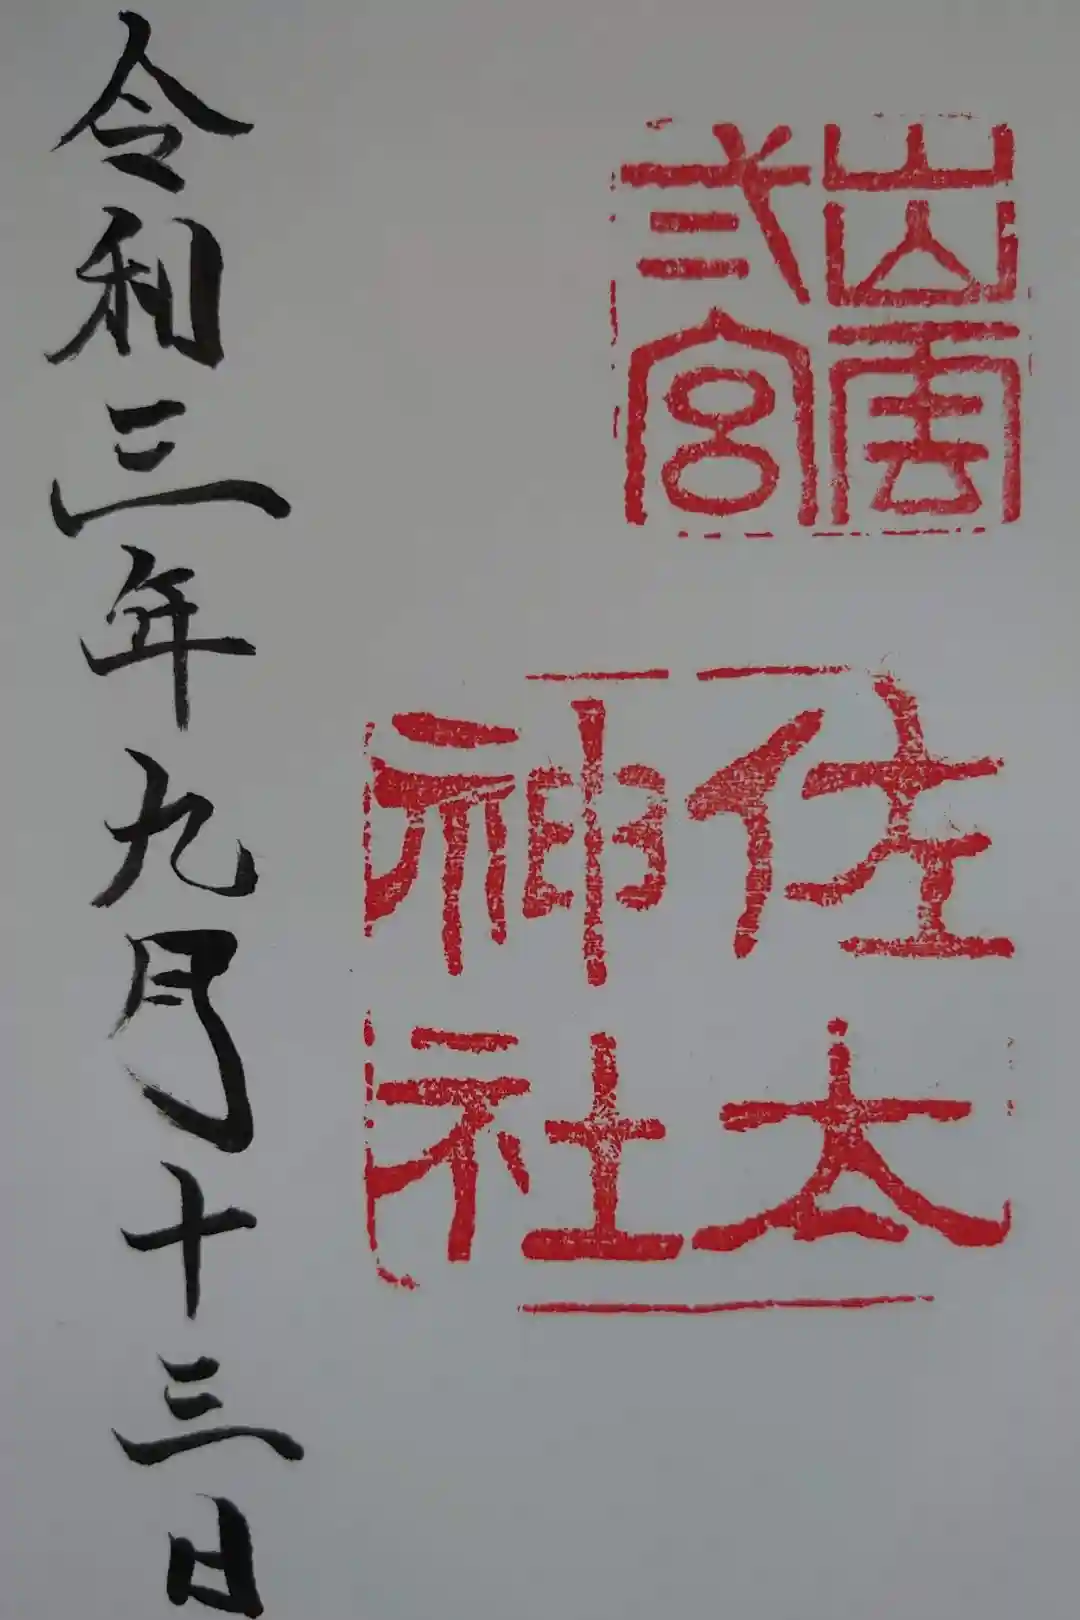 出雲
弐宮
佐太
神社
令和三年九月十三日